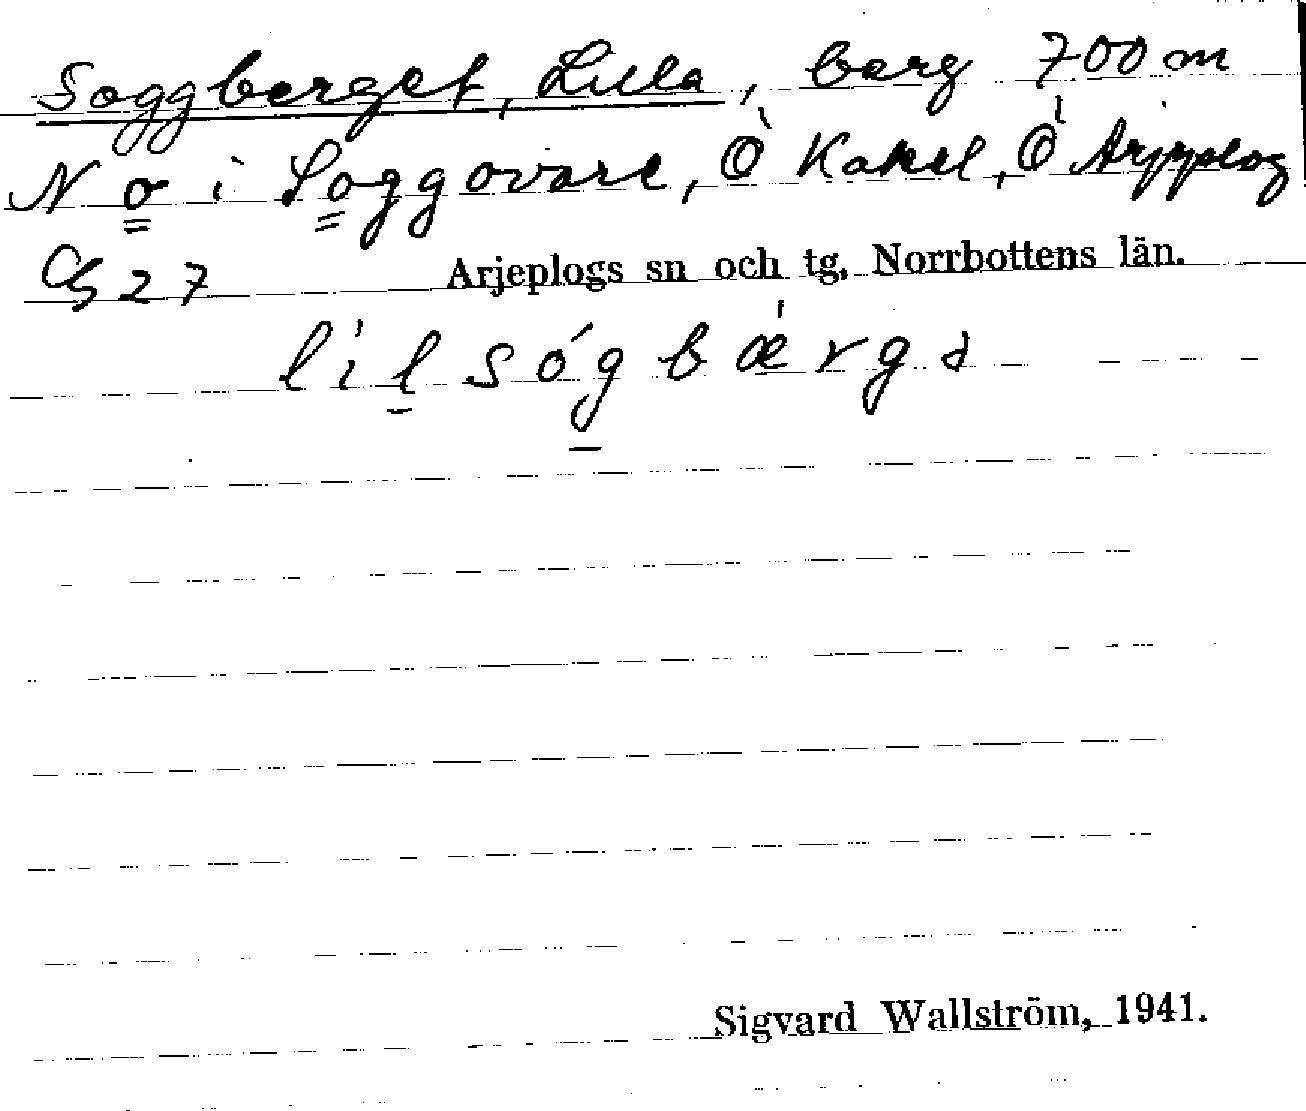 Soggberget, Lilla, berg 700 m
N o i Soggovare, Ö Kakel, Ö Arjeplog
27 Arjeplogs sn och tg, Norrbottens län.
lìlsógbǽrgə
Sigvard Wallström, 1941.